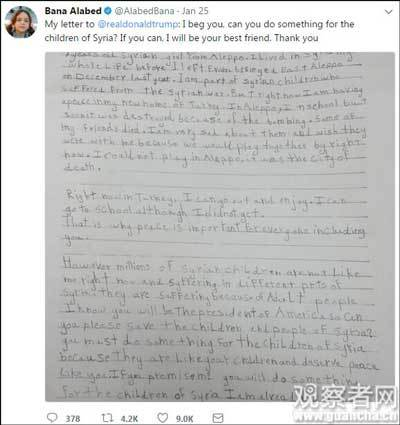 Bana Alabed @AlabedBana · Jan 25
My letter to @realdonaldtrump: I beg you, can you do something for the
children of Syria? If you can, I will be your best friend. Thank you
Syrian girl from Aleppo. I lived in
whole life before I left East Aleppo
on December last year. I am part of Syrian children who
suffered from the Syrian war. But right now I am having
a peace in my new home of Turkey. In Aleppo, I in school but
soon it was destroyed because of the bombing. Some of
my friends died. I am very sad about them and wish they
were with me because we would play together by right
now. I could not play in Aleppo, it was the city of
death.
Right now in Turkey, I can go out and enjoy. I can
go to school although I didn't yet.
That is why peace is important for everyone including
you.
However millions of syrian children are not like
me right now and suffering in different parts of
Syria. They are suffering because of Adult people
I know you will be the president of America, so can
you please save the children and people of Syria?
you must do something for the children of Syria
because They are like your children and deserve peace
like you. If you promise me you will do something
for the children of Syria I am alrea
378 4.2K 9.0K
观察者网